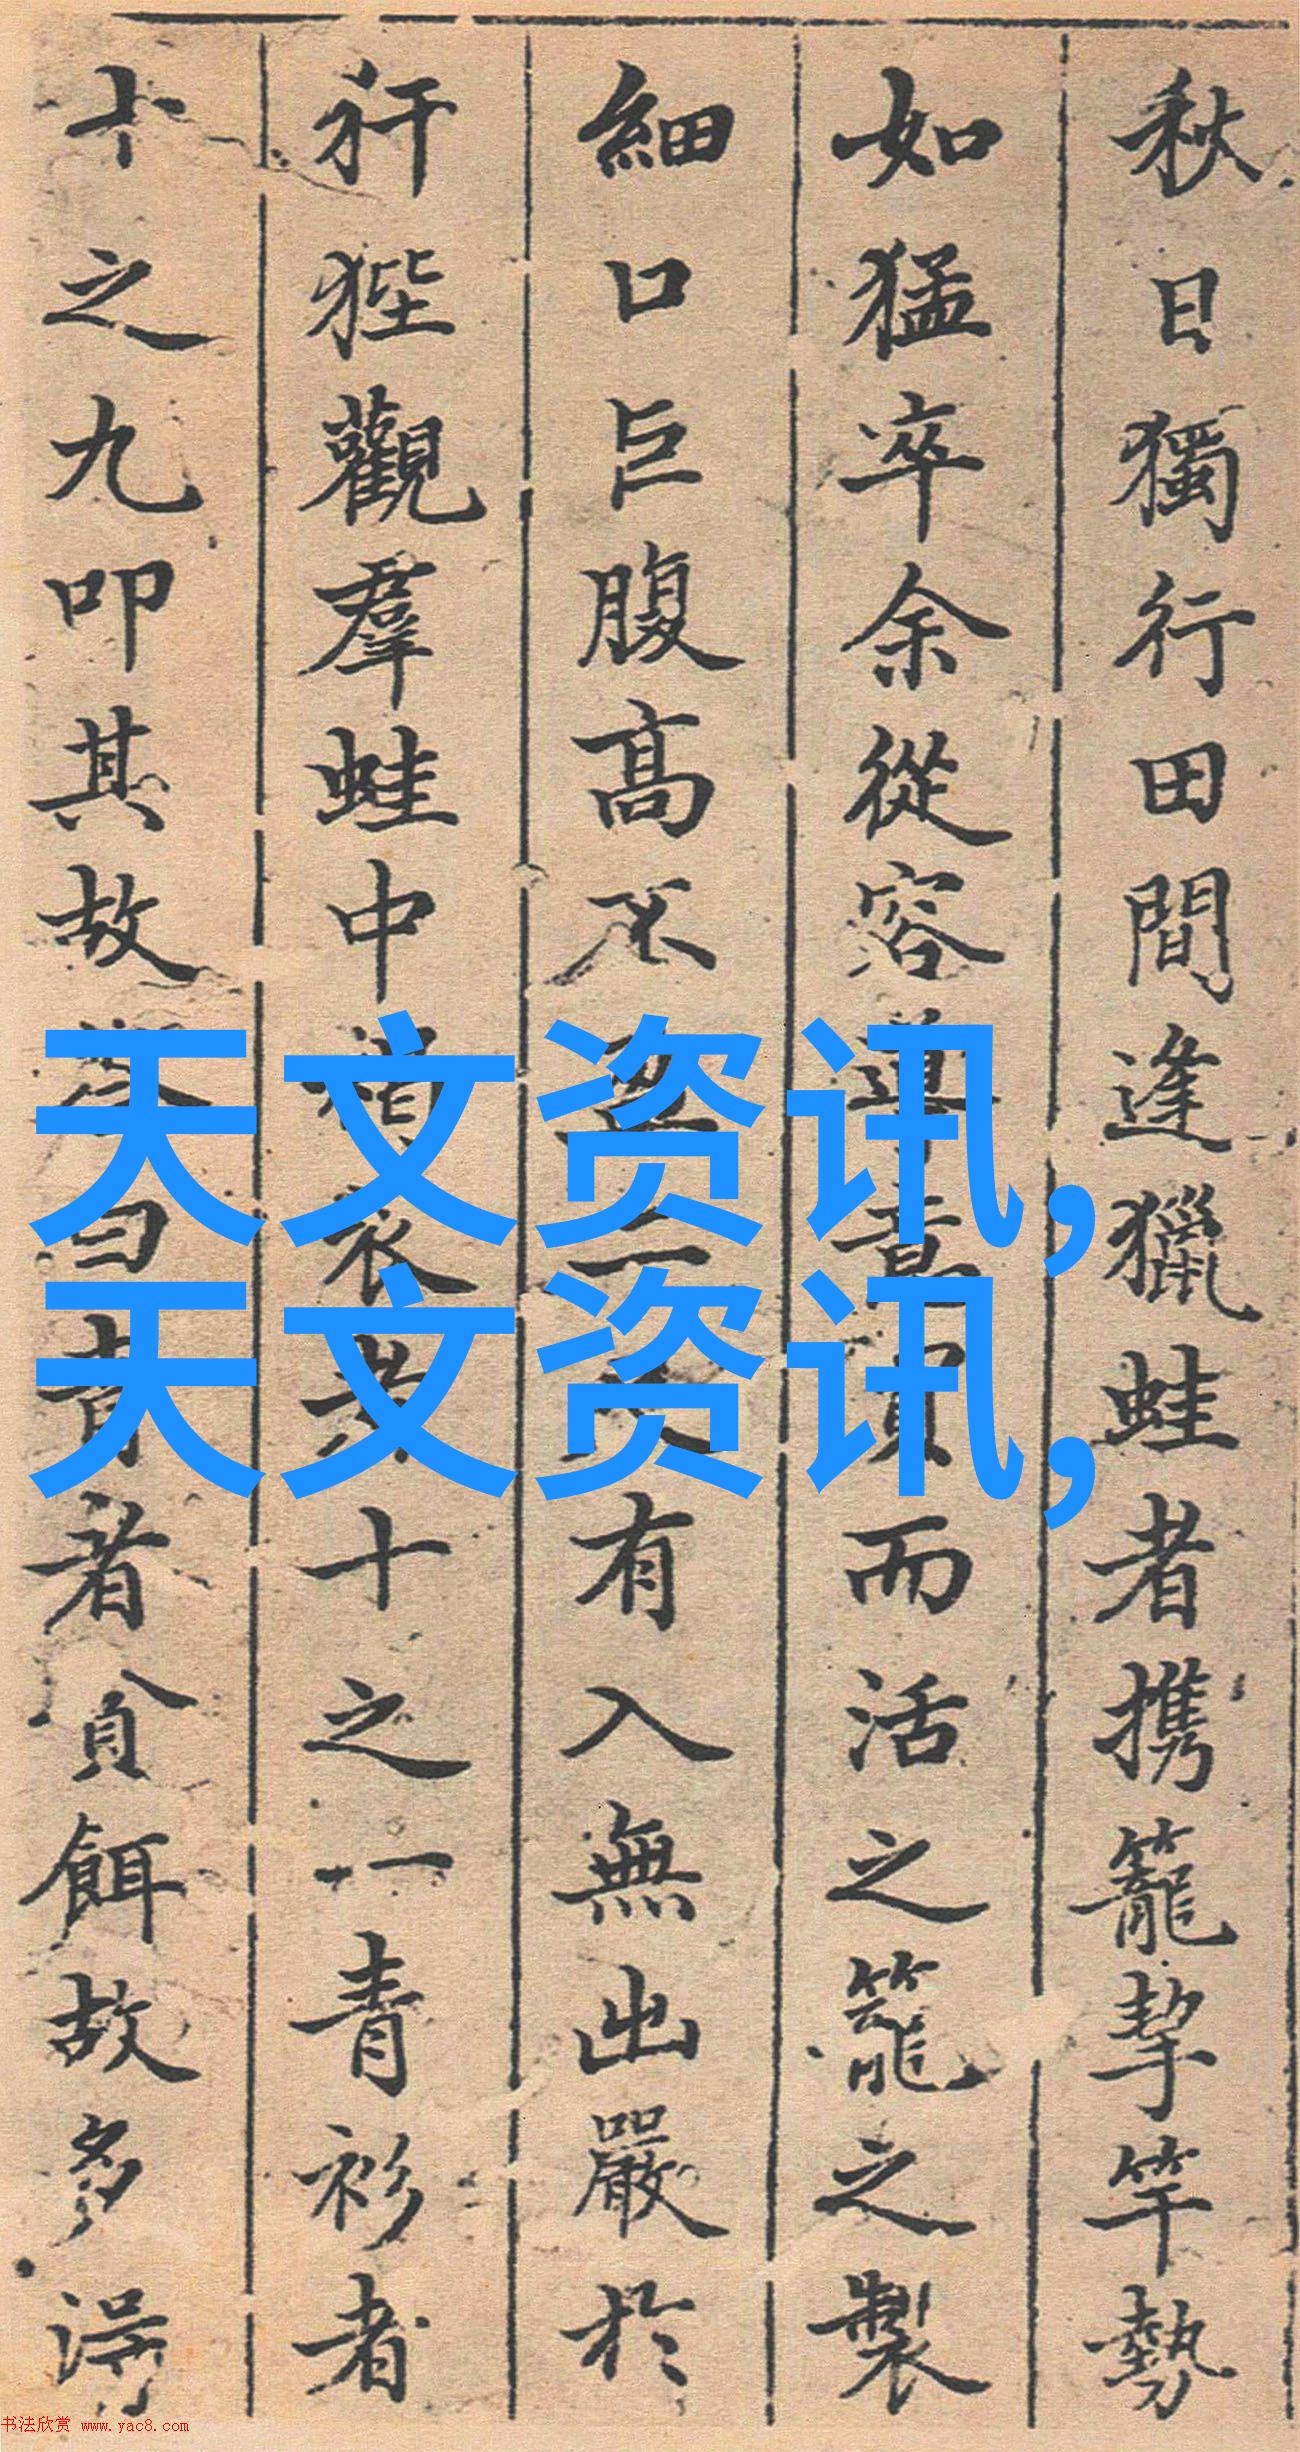 秋日獨行田間逢獵蛙者携籠挈竿勢
如猛卒余從容導意買而活之籠之製
細口巨腹高不盈二尺有入無出嚴於
犴狴觀羣蛙中褐衣者十之一青衫者
十之九叩其故答曰青者貪餌故多得
天文资讯,
天文资讯,
书法欣赏 www.yac8.com